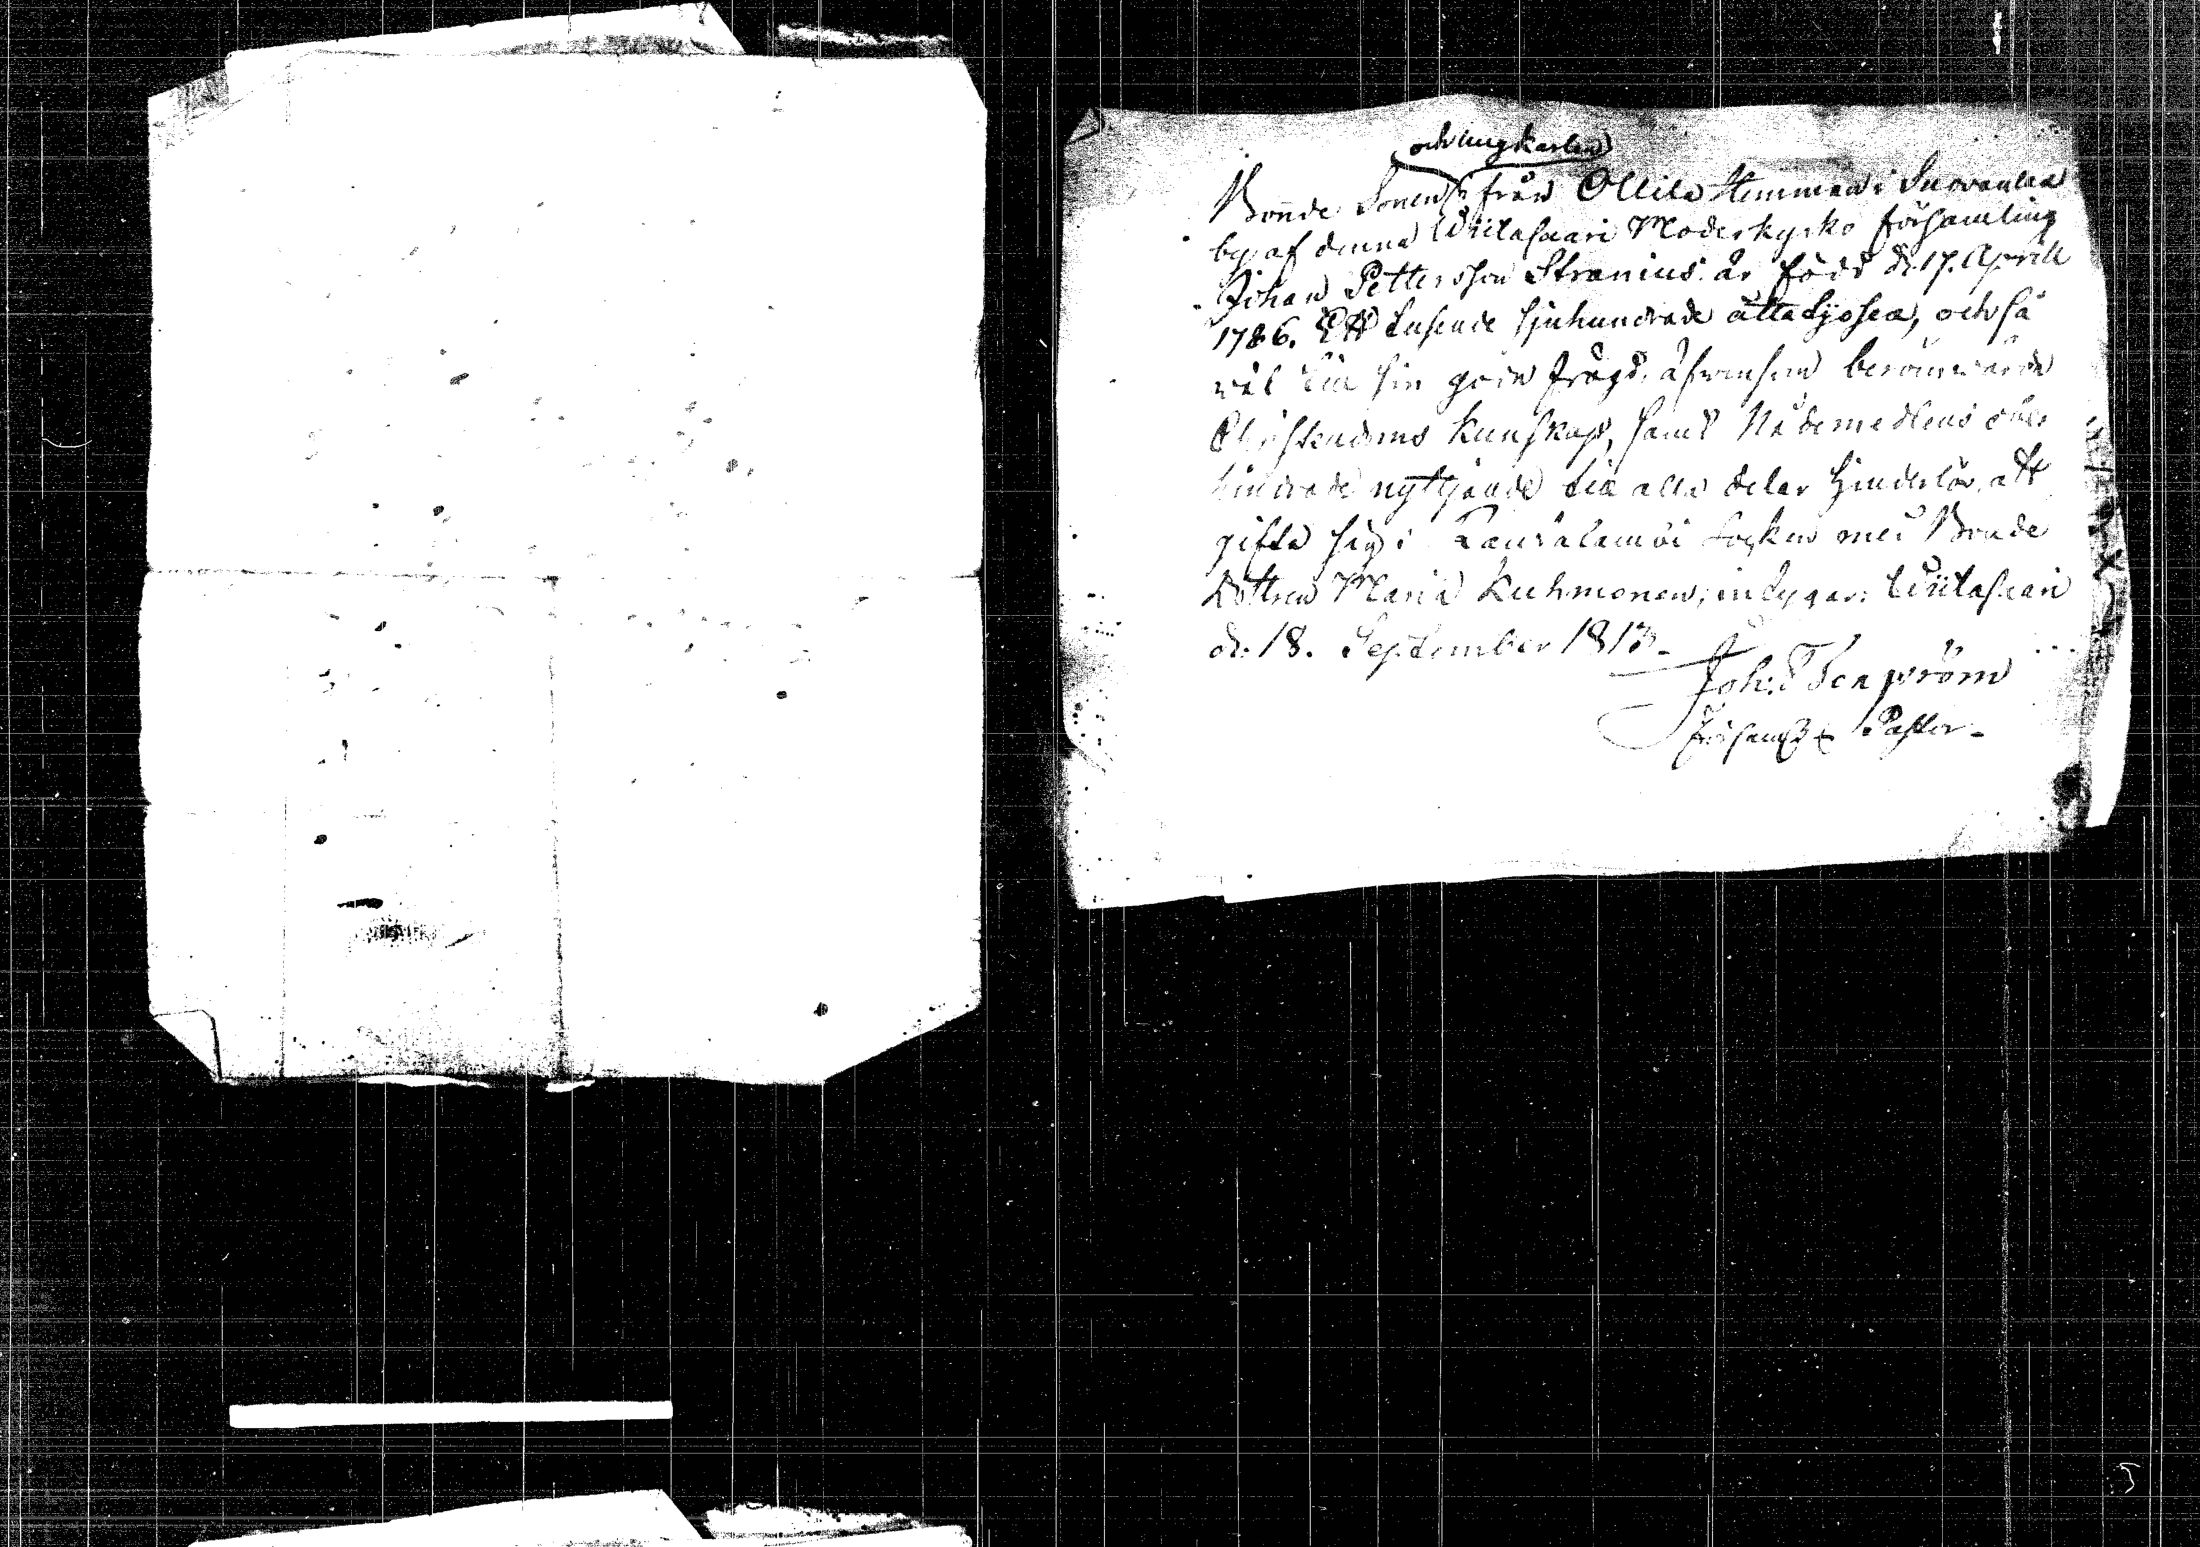 och ungkarlen
Bonde Sonen från Ollila Hemman i Suovanlax
by af denna Wiitasaari Moderkyrko församling
Johan Pettersson Stranius är född d. 17. April
1786. Ett tusende sjuhundrade åttatijosex, och så
väl till sin goda frägd, åfvensom berömvärda
Christendoms Kunskap, samt Nådemedlens obe-
hindrade nyttjande till alla delar hinderlös, att
gifta sig i Rautalambi Socken med Bonde
Dottren Maria Kuhmonen; intygar: Wiitasaari
d: 18. September 1813.
Joh:
Pastor.